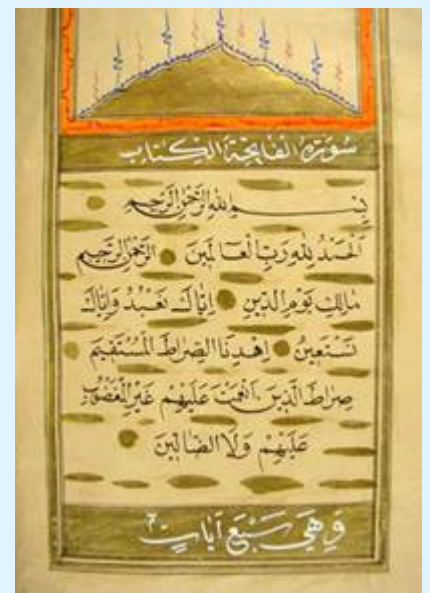 سورة الفاتحة الكتاب
بسم الله الرحمن الرحيم
الحمد لله رب العالمين الرحمن الرحيم
مالك يوم الدين اياك نعبد واياك
نستعين اهدنا الصراط المستقيم
صراط الذين انعمت عليهم غير المغضوب
عليهم ولا الضالين
وهي سبع آيات